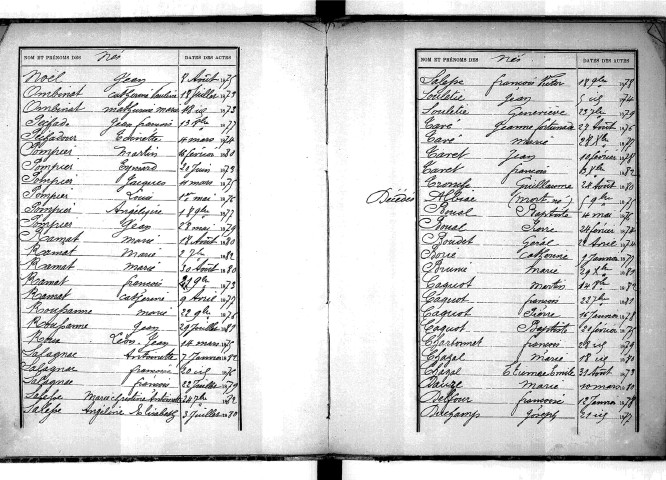 NOM ET PRÉNOMS DES Nés DATES DES ACTES
Noël Jean 4 Août 1875
Ombinat Catherine 18 Juillet 1873
Ombinat Mathurine Marie 18 1873
Jean François 13 1877
Pompadour 4 mars 1874
Pompier Martin 16 février 1880
Pompier Eymard 20 Juin 1873
Pompier Jacques 4 mars 1875
Pompier Louis 1er mai 1876
Pompier Angélique 1 9bre 1877
Pompier Jean 22 mai 1879
Ramat Marie 18 Août 1880
Ramat Marie 2 7bre 1882
Ramat Marie 30 Août 1880
Ramat François 21 9bre 1873
Ramat Catherine 9 Avril 1877
Roupanne Marie 22 9bre 1876
Roupanne Jean 29 Juillet 1881
Roux Léon Jean 14 mars 1875
Salagnac Antoinette 7 Janvier 1882
Salagnac François 20 id 1876
Salagnac François 22 Juillet 1879
Salesse Marie Antoinette 24 7bre 1882
Salesse Angéline Elisabeth 3 Juillet 1880
NOM ET PRÉNOMS DES Nés DATES DES ACTES
Salesse François Victor 18 9bre 1878
Souletie Jean 5 id 1874
Souletie Geneviève 23 7bre 1879
Tavé Jeanne 27 Août 1876
Tavé Marie 28 Xbre 1877
Tavet Jean 10 février 1878
Tavet François 13 Xbre 1882
Guillaume 28 Août 1880
Décédés Albiac (mort né) 5 9bre 1875
Boual Baptiste 4 mai 1876
Boual Pierre 28 février 1878
Boudet Géral 22 Avril 1874
Borie Catherine 9 Janvier 1877
Brume Marie 29 Xbre 1880
Caquot Martin 14 8bre 1882
Caquot François 22 7bre 1881
Caquot Pierre 16 Janvier 1878
Caquot Baptiste 20 février 1875
Charbonnel François 28 id 1879
Chazal Marie 18 id 1880
Chazal Etienne Emile 31 Août 1873
Dauze Marie 10 mars 1880
Delfour François 12 Janvier 1878
Deschamps Joseph 21 id 1877